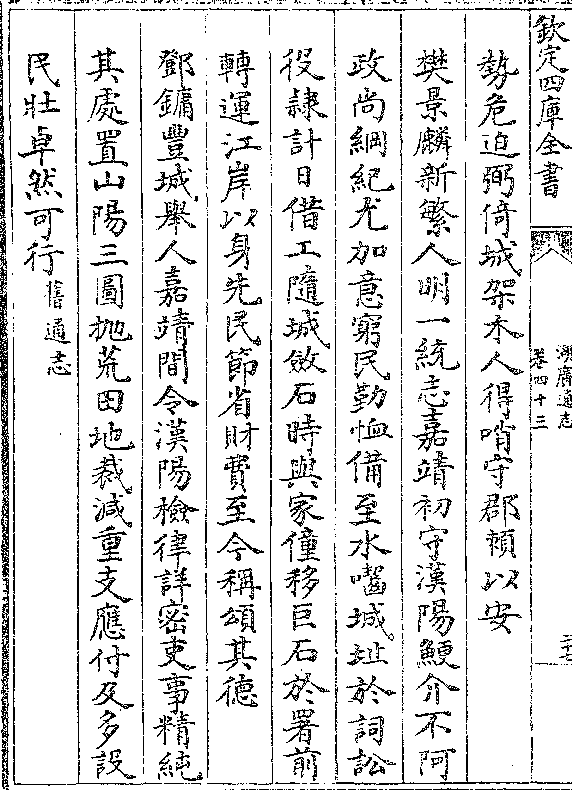 欽定四庫全書
湖廣通志
卷四十三
二十七
勢危迫弼倚城架木人得哨守郡賴以安
樊景麟新繁人明一統志嘉靖初守漢陽鯁介不阿
政尚綱紀尤加意窮民勤恤備至水嚙城址於詞訟
役隷計日借工隨城斂石時與家僮移巨石於署前
轉運江岸以身先民節省財費至今稱頌其德
鄧鏞豐城舉人嘉靖間令漢陽檢律詳密吏事精純
其處置山陽三圖抛荒田地裁減重支應付及多設
民壯卓然可行舊通志